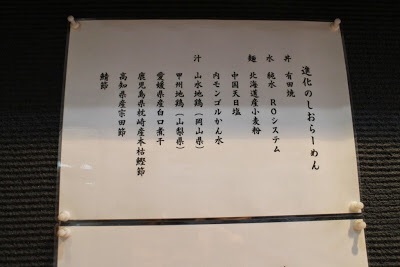 進化のしおらーめん
丼 有田焼
水 純水 ROシステム
麺 北海道産小麦粉
中国天日塩
内モンゴルかん水
汁 山水地鶏（岡山県）
甲州地鶏（山梨県）
愛媛県産白口煮干
鹿児島県枕崎産本枯鰹節
高知県産宗田節
鯖節